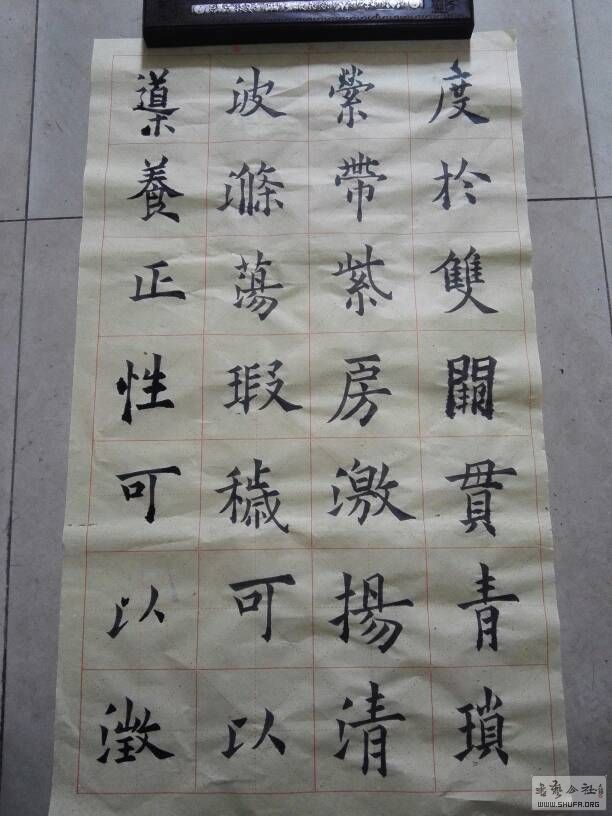 度於雙闕貫青瑣
縈帶紫房激揚清
波滌蕩瑕穢可以
導養正性可以澂
书艺公社
WWW.SHUFA.ORG